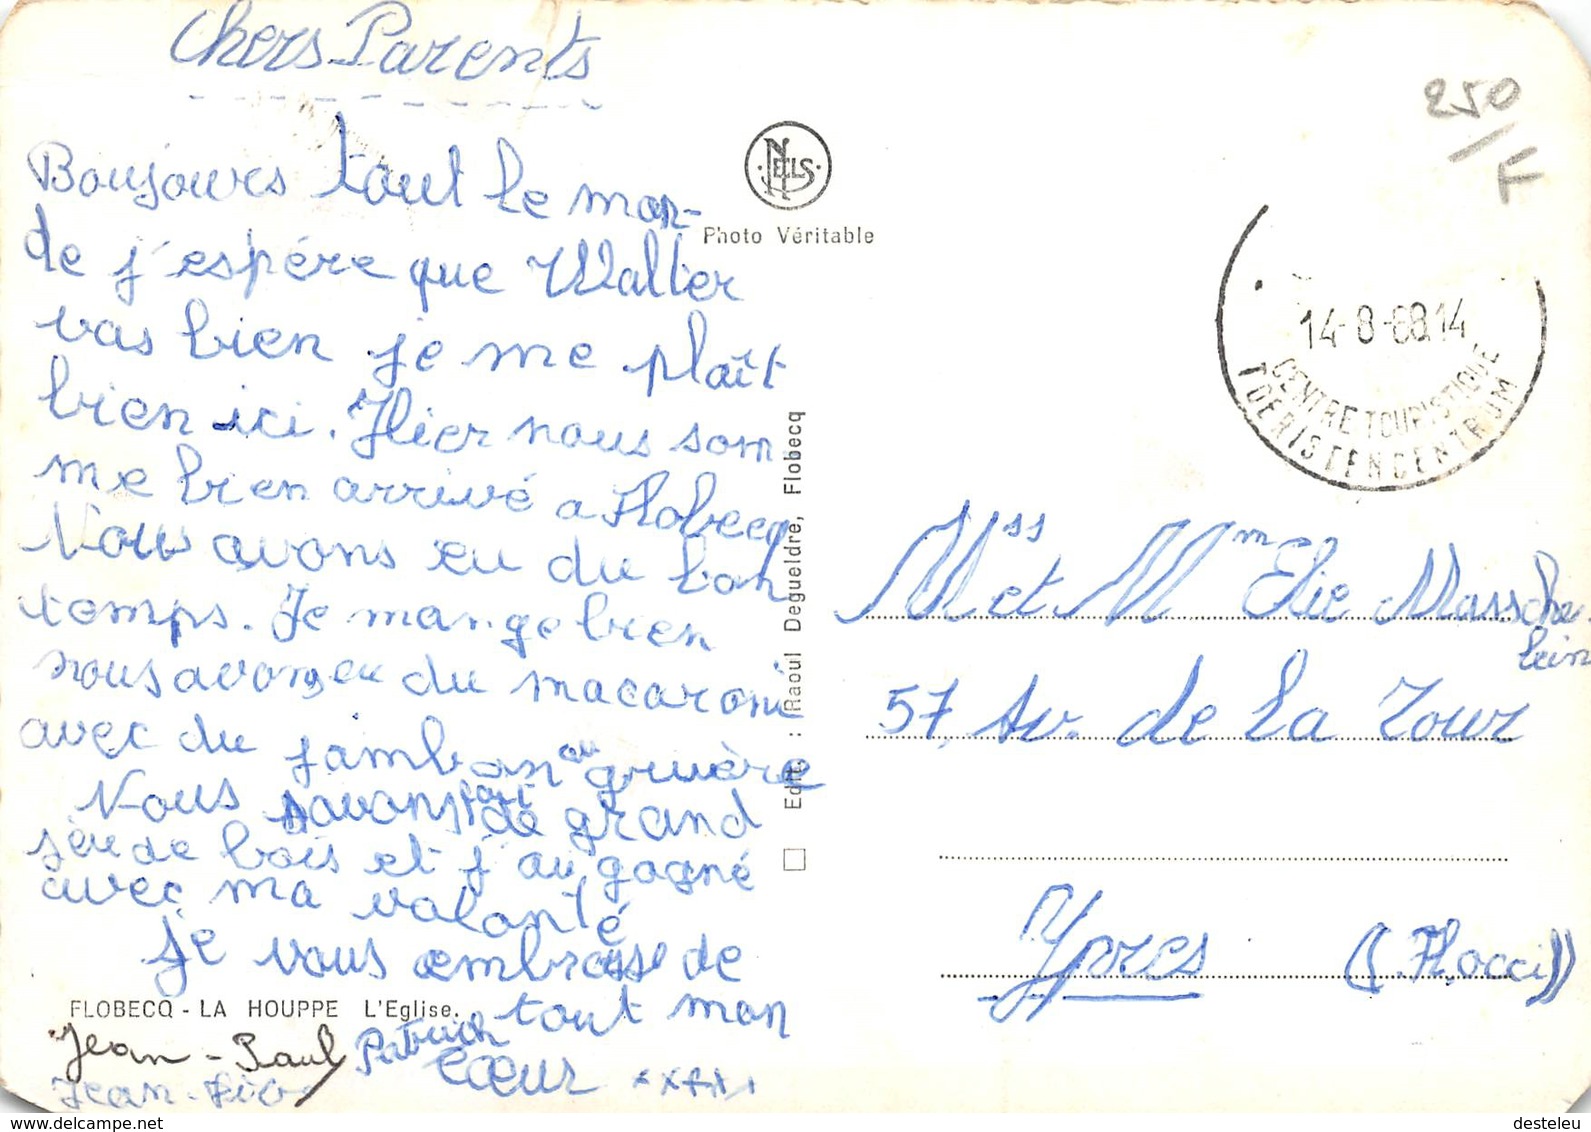 Chers Parents
Boujours tout le mon-
de j'espére que Walter
vas bien je me plaît
bien ici. Hier nous som
me bien arrivé a Flobecq
Nous avons eu du bon
temps. Je mange bien
nous avons eu du macaroni
avec du jambon au gruère
Nous avons de grand
jeu de bois et j'ai gagné
avec ma volonté
je vous embrasse de
tout mon
cœur
Patrick
Jean-Paul
FLOBECQ - LA HOUPPE L'Eglise.
NELS
Photo Véritable
Edit. : Raoul Degueldre, Flobecq
250
F
14-8-68 14
CENTRE TOURISTIQUE
TOERISTENCENTRUM
Mss et Mme Elie Massche-
lein
57, Av. de La Tour
Ypres (Fl. occi)
desteleu